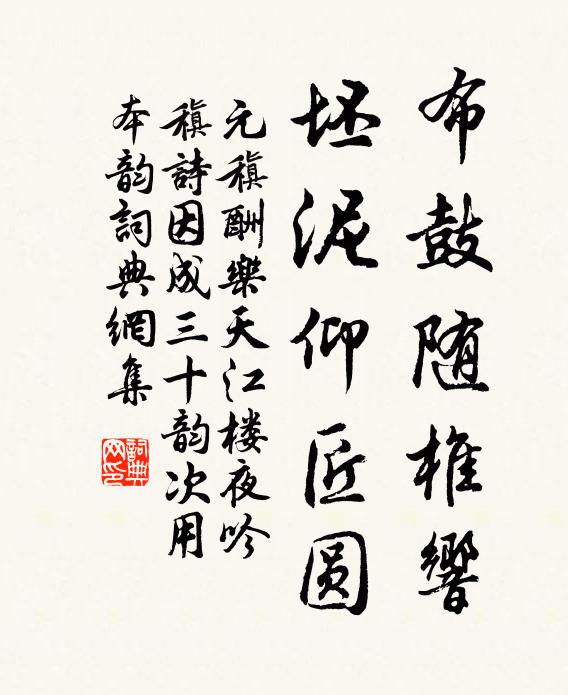 布鼓随椎響
坯泥仰匠圆
元稹酬樂天江楼夜吟
稹詩因成三十韵次用
本韵詞典網集
詞典网印